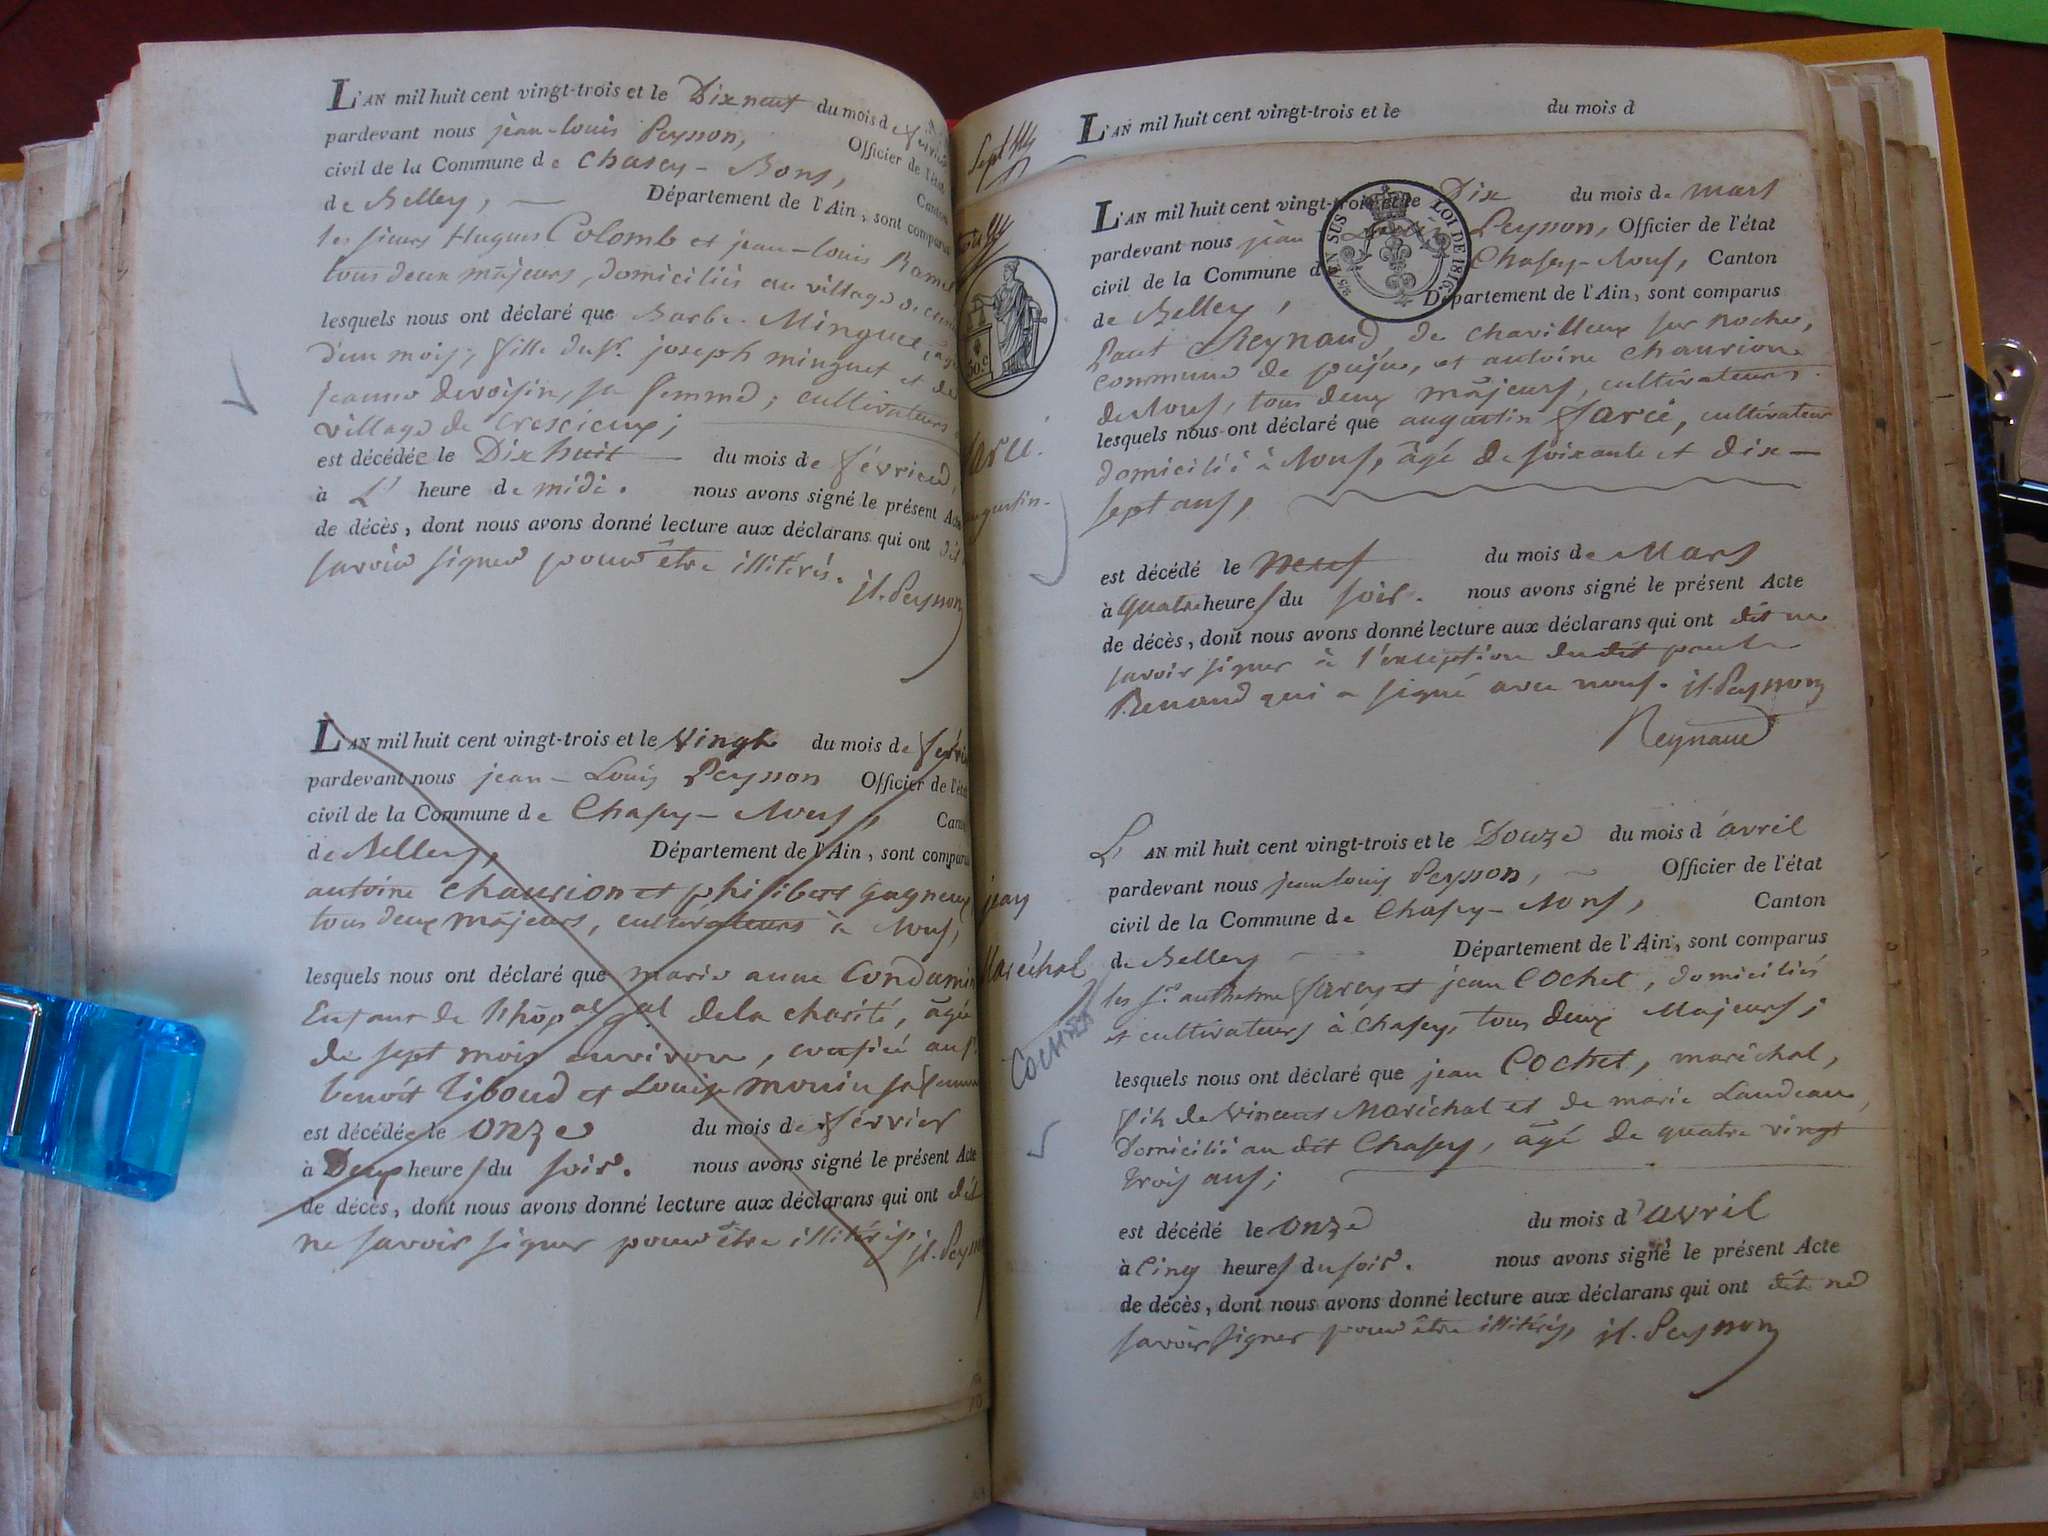 L'AN mil huit cent vingt-trois et le Dix neuf du mois de février
pardevant nous jean-louis Peysson, Officier de l'état
civil de la Commune de Chasey-Bons, Canton
de Belley, Département de l'Ain, sont comparus
les sieurs Hugues Colomb et jean-louis Ramel
tous deux majeurs, domiciliés au village de
lesquels nous ont déclaré que Barbe Minguet, âgé
d'un mois, fille du Sr. joseph minguet et de
jeanne devoisin, sa femme, cultivateurs
village de Crescieux;
est décédée le Dix huit du mois de février,
à L' heure de midi. nous avons signé le présent Acte
de décès, dont nous avons donné lecture aux déclarans qui ont dit
savoir signer pour être illitérés. jl. Peysson
L'AN mil huit cent vingt-trois et le Vingt du mois de février
pardevant nous jean-Louis Peysson Officier de l'état
civil de la Commune de Chasey-Nous, Canton
de Belley, Département de l'Ain, sont comparus
antoine chaurion et philibert gagneux
tous deux majeurs, cultivateurs à Nous,
lesquels nous ont déclaré que marie anne Condamin
Enfant de l'hôpal gal de la charité, âgée
de sept mois environ, confiée au Sr.
benoît Riboud et Louise monin sa femme
est décédée le onze du mois de février
à Deux heures du soir. nous avons signé le présent Acte
de décès, dont nous avons donné lecture aux déclarans qui ont dit
ne savoir signer pour être illitérés, jl. Peysson
L'AN mil huit cent vingt-trois et le du mois d
L'AN mil huit cent vingt-trois et le Dix du mois de mars
pardevant nous jean Louis Peysson, Officier de l'état
civil de la Commune d Chasey-Nous, Canton
de Belley, Département de l'Ain, sont comparus
EN SUS LOI DE 1816
50 c
Paul Reynaud, de chavilleux sur roche,
commune de pujeu, et antoine chaurion
de Nous, tous deux majeurs, cultivateurs.
lesquels nous ont déclaré que augustin farci, cultivateur
domicilié à Nous, âgé de soixante et dix-
sept ans,
est décédé le neuf du mois de Mars
à quatre heures du soir. nous avons signé le présent Acte
de décès, dont nous avons donné lecture aux déclarans qui ont dit ne
savoir signer à l'exception du dit paul
Renaud qui a signé avec nous. jl. Peysson
Reynaud
jean
Maréchal
Cochet
L'AN mil huit cent vingt-trois et le Douze du mois d'avril
pardevant nous jean louis Peysson, Officier de l'état
civil de la Commune de Chasey-Nous, Canton
de Belley Département de l'Ain, sont comparus
les Srs anthelme farcy et jean Cochet, domiciliés
et cultivateurs à Chasey, tous deux Majeurs;
lesquels nous ont déclaré que jean Cochet, maréchal,
fils de Vincent Maréchal et de marie Landeau,
Domicilié au dit Chasey, âgé de quatre vingt
trois ans;
est décédé le onze du mois d'avril
à Cinq heures du soir. nous avons signé le présent Acte
de décès, dont nous avons donné lecture aux déclarans qui ont dit ne
savoir signer pour être illitérés, jl. Peysson